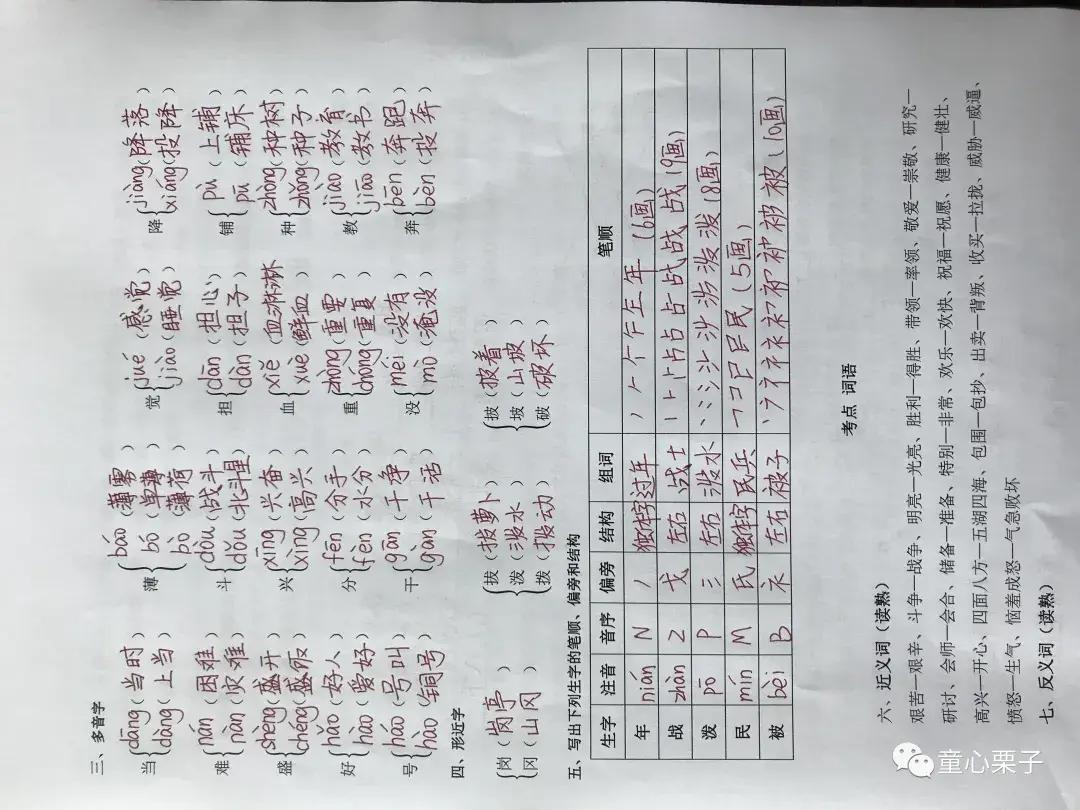 三、多音字
当{dāng(当时) 薄{báo(薄雾) 觉{jué(感觉) 降{jiàng(降落)
dàng(上当) bó(单薄) jiào(睡觉) xiáng(投降)
bò(薄荷)
难{nán(困难) 斗{dòu(战斗) 担{dān(担心) 铺{pù(上铺)
nàn(灾难) dǒu(北斗星) dàn(担子) pū(铺床)
盛{shèng(盛开) 兴{xīng(兴奋) 血{xiě(血淋淋) 种{zhòng(种树)
chéng(盛饭) xìng(高兴) xuè(鲜血) zhǒng(种子)
好{hǎo(好人) 分{fēn(分手) 重{zhòng(重要) 教{jiào(教育)
hào(爱好) fèn(水分) chóng(重复) jiāo(教书)
号{háo(号叫) 干{gān(干净) 没{méi(没有) 奔{bēn(奔跑)
hào(铜号) gàn(干活) mò(淹没) bèn(投奔)
四、形近字
{岗(岗亭) {拔(拔萝卜) {披(披着)
冈(山冈) 泼(泼水) 坡(山坡)
拨(拨动) 破(破坏)
五、写出下列生字的笔顺、偏旁和结构
生字 注音 音序 偏旁 结构 组词 笔顺
年 nián N 丿 独体字 过年 (6画)
战 zhàn Z 戈 左右 战士 (9画)
泼 pō P 氵 左右 泼水 (8画)
民 mín M 氏 独体字 民兵 (5画)
被 bèi B 衤 左右 被子 (10画)
考点 词语
六、近义词(读熟)
艰苦—艰辛、斗争—战争、明亮—光亮、胜利—得胜、带领—率领、敬爱—崇敬、研究—
研讨、会师—会合、储备—准备、特别—非常、欢乐—欢快、祝福—祝愿、健康—健壮、
高兴—开心、四面八方—五湖四海、包围—包抄、出卖—背叛、收买—拉拢、威胁—威逼、
愤怒—生气、恼羞成怒—气急败坏
七、反义词(读熟)
童心栗子